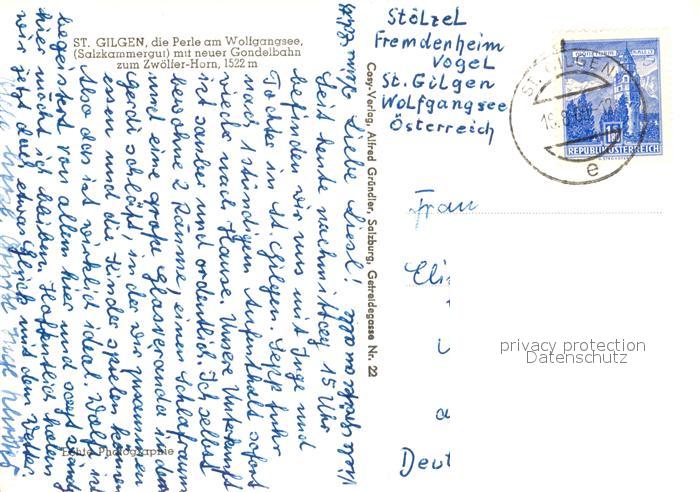 ST. GILGEN, die Perle am Wolfgangsee,
(Salzkammergut) mit neuer Gondelbahn
zum Zwölfer-Horn, 1522 m
Liebe Liesl!
Seit heute nachmittag 15 Uhr
befinden wir uns mit Inge und
Tochter in St. Gilgen. Sepp fuhr
nach 1 stündigem Aufenthalt sofort
wieder nach Hause. Unsere Unterkunft
ist sauber und ordentlich. Ich selbst
bewohne 2 Räume, einen Schlafraum
und eine große Glasveranda in der
Gerdi schläft, in der wir zusammen
essen und die Kinder spielen können
Also das ist wirklich ideal. Wolfi ist
begeistert von allem hier und sagt ständig
hier möcht ich bleiben. Hoffentlich haben
wir jetzt doch etwas Glück mit dem Wetter.
Echte Photographie
Cosy-Verlag, Alfred Gründler, Salzburg, Getreidegasse Nr. 22
Stölzel
Fremdenheim
Vogel
St. Gilgen
Wolfgangsee
Österreich
ST. GILGEN
e
REPUBLIK ÖSTERREICH
Frau
Eli
Deut
privacy protection
Datenschutz